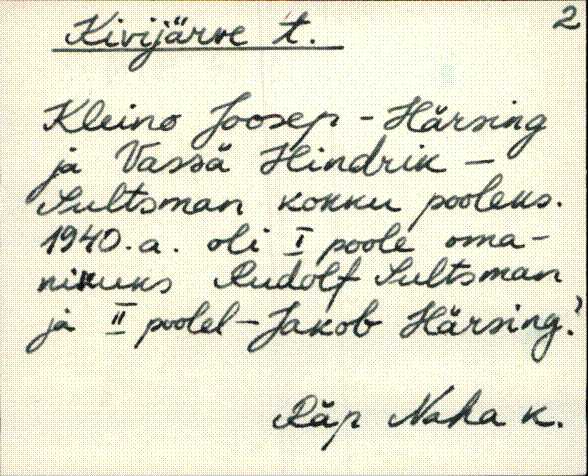 2
Kivijärve t.
Kleino Joosep - Härsing
ja Vassä Hindrik -
Sultsman kokku pooleks.
1940. a. oli I poole oma-
nikuks Rudolf Sultsman
ja II poolel - Jakob Härsing?
Räp Naha k.